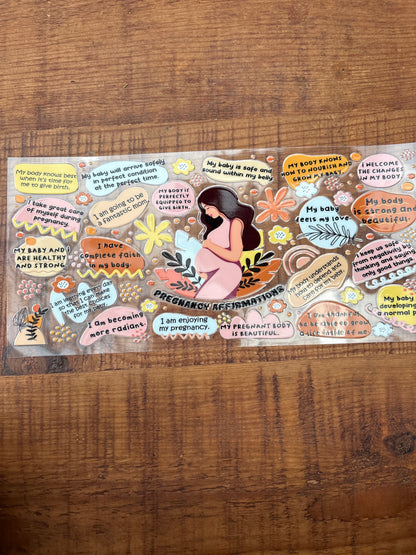 My body knows best
when it's time for
me to give birth.
My baby will arrive safely
in perfect condition
at the perfect time.
My baby is safe and
sound within my belly
MY BODY KNOWS
HOW TO NOURISH AND
GROW MY BABY
I WELCOME
THE CHANGES
IN MY BODY.
I take great care
of myself during
pregnancy.
I am going to be
a fantastic mom.
MY BODY IS
PERFECTLY
EQUIPPED TO
GIVE BIRTH.
My baby
feels my love
My body
is strong and
beautiful
MY BABY AND
ARE HEALTHY
AND STRONG
I have
complete faith
in my body.
PREGNANCY AFFIRMATIONS
My body understands
how to
care for my
I keep us safe
from negative
thinking and saying
only good things.
I am learning every day
so that I can make
the best choices
for my
I am becoming
more radiant
I am enjoying
my pregnancy.
MY PREGNANT BODY
IS BEAUTIFUL.
I am thankful
to be
a life inside of me
My baby
developing
a normal